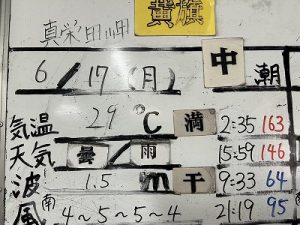 真栄田岬 黄旗
6/17(月) 中潮
気温 29℃ 満 2:35 163
天気 曇/雨 15:59 146
波 1.5m 干 9:33 64
風 南 4~5~5~4 21:19 95